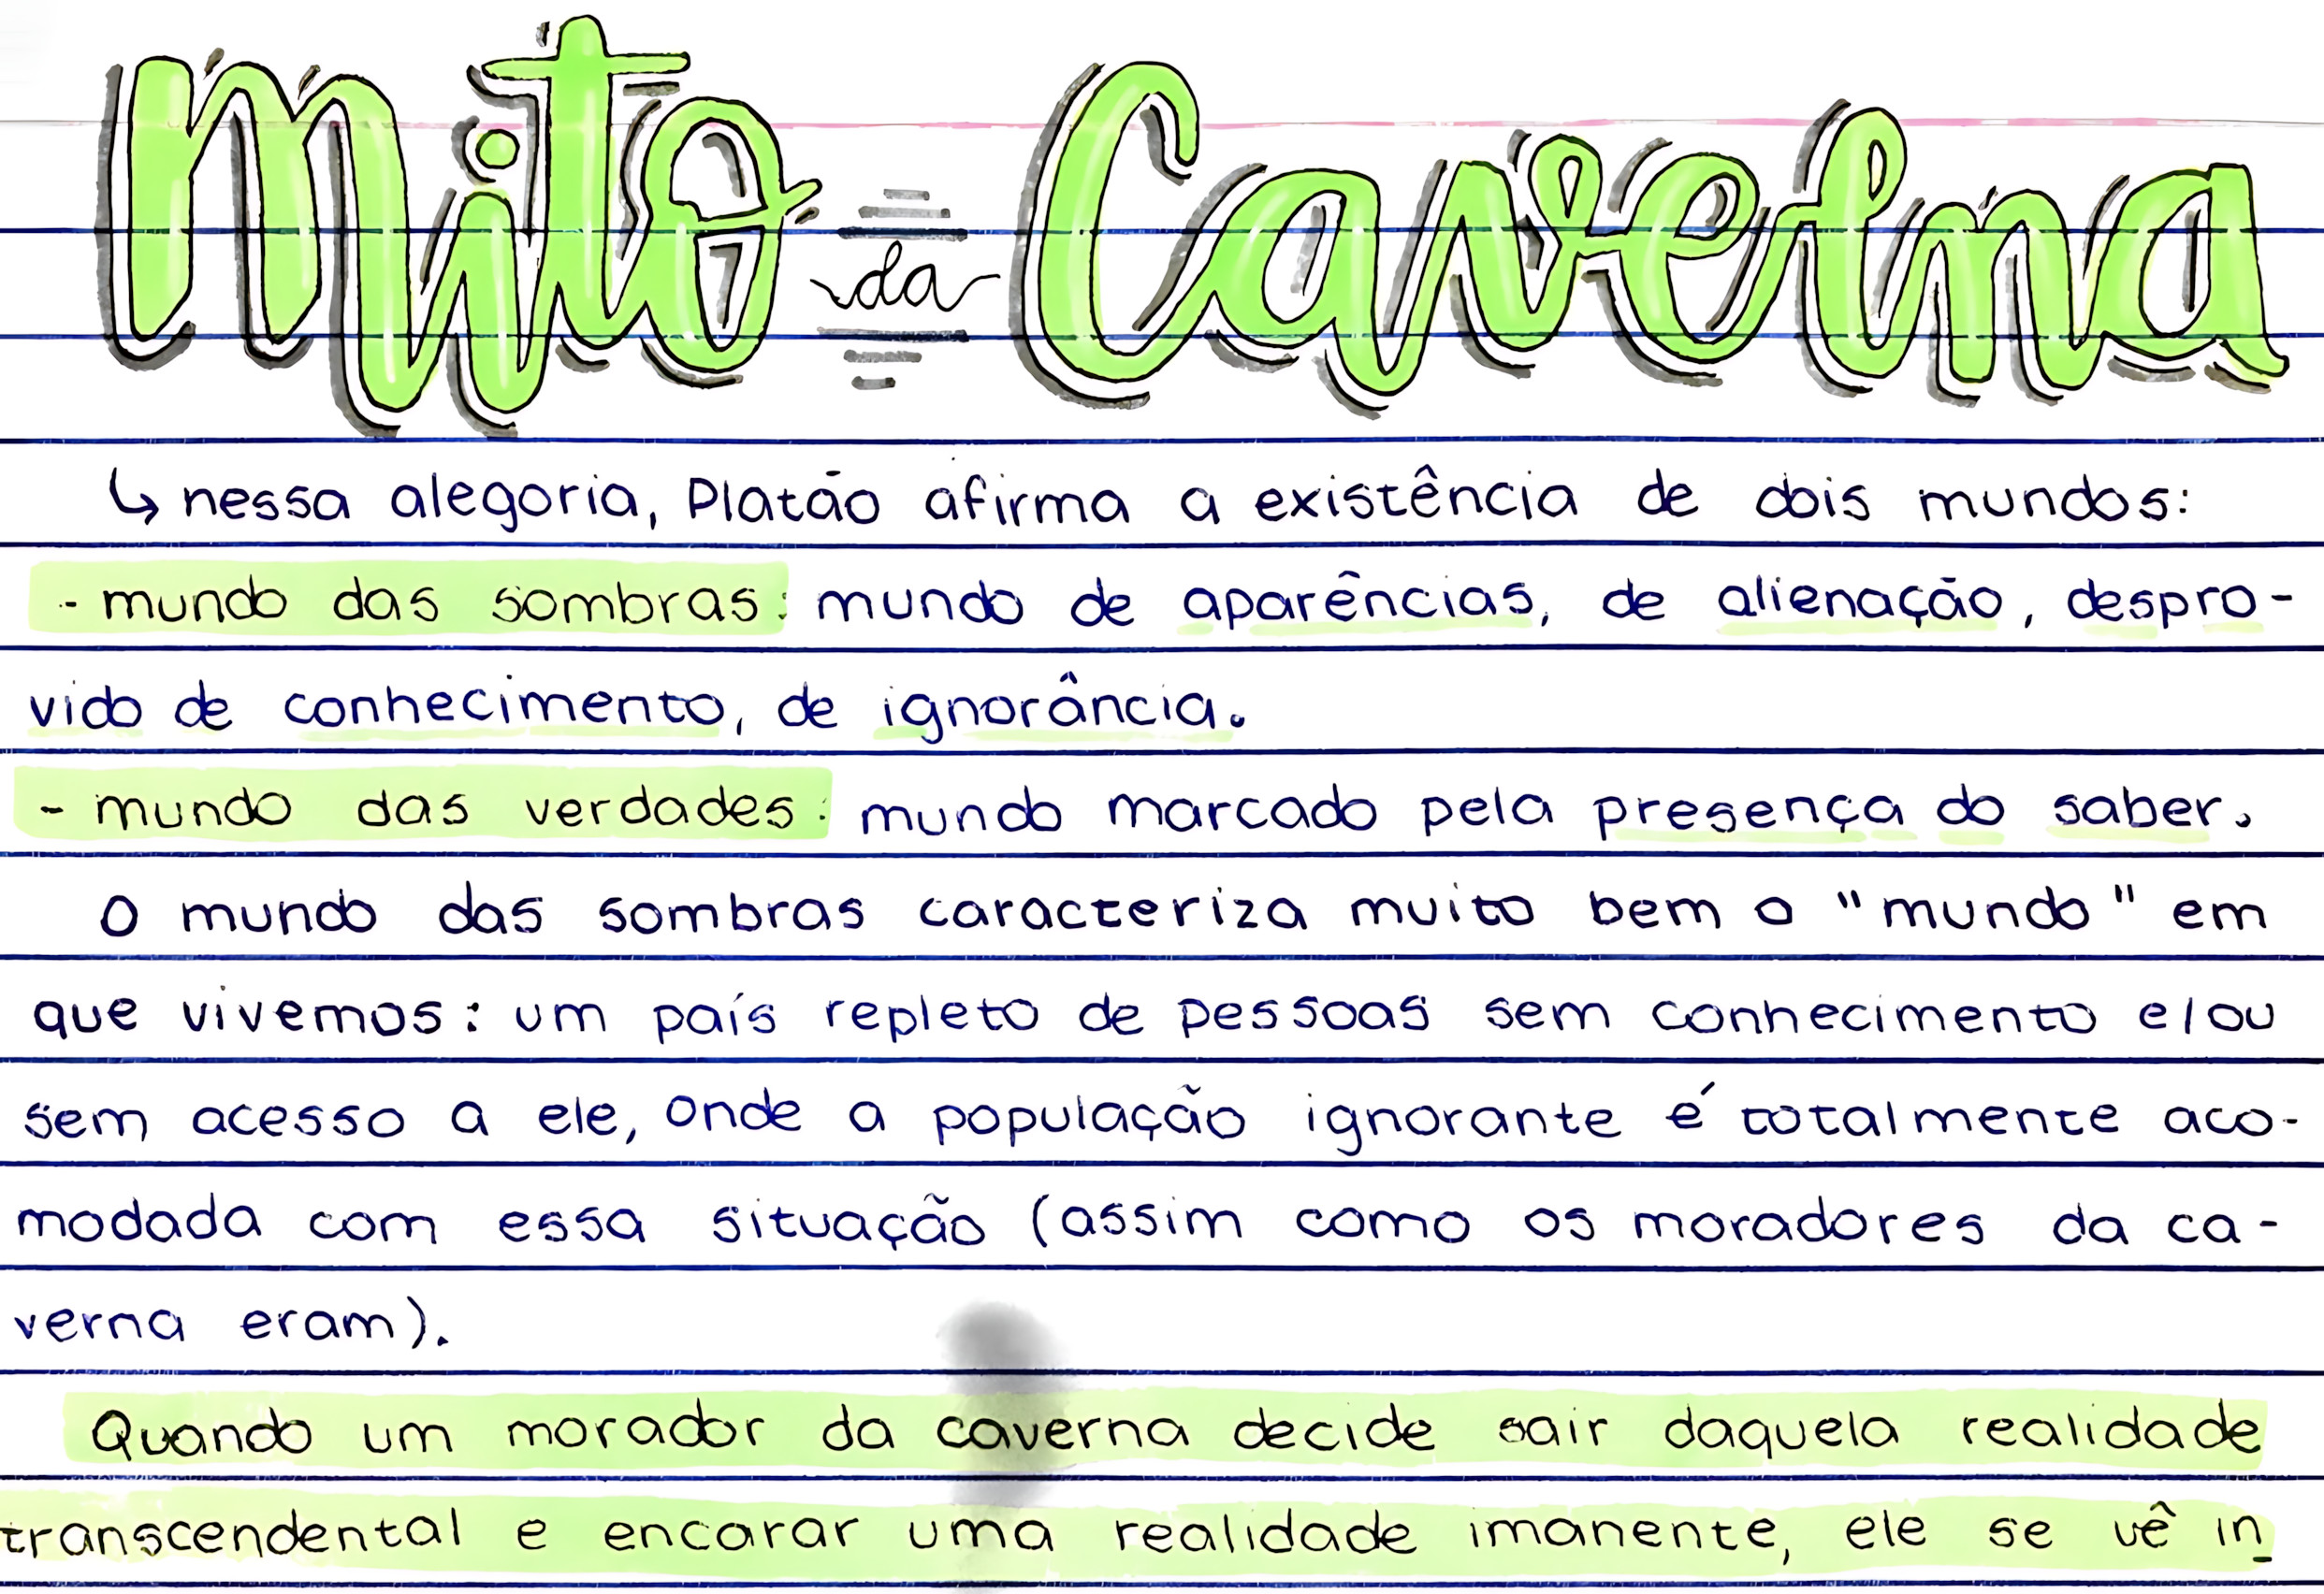 Mito da Caverna
↳ nessa alegoria, Platão afirma a existência de dois mundos:
- mundo das sombras: mundo de aparências, de alienação, despro-
vido de conhecimento, de ignorância.
- mundo das verdades: mundo marcado pela presença do saber.
O mundo das sombras caracteriza muito bem o "mundo" em
que vivemos: um país repleto de pessoas sem conhecimento e/ou
sem acesso a ele, onde a população ignorante é totalmente aco-
modada com essa situação (assim como os moradores da ca-
verna eram).
Quando um morador da caverna decide sair daquela realidade
transcendental e encarar uma realidade imanente, ele se vê in